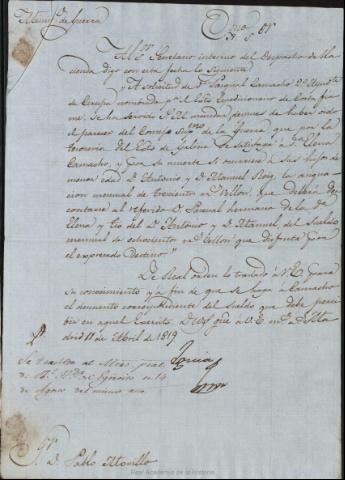 Minist.º de Guerra
Exmo. Sor.
Al Sr. Secretario interino del Despacho de Ha
cienda digo con esta fecha lo siguiente
"A solicitud de Dn. Pasqual Camacho
nombrado pa. el Exto. Expedicionario de Costa firme
se ha servido S. M. mandar despues de haber oido
el parecer del Consejo Supmo. de la Guerra, que por la
tesoreria del Exto. de Galicia se satisfaga a Dña. Elena
Camacho, y por su muerte si ocurriere a sus hijos de
menor edad D. Antonio y D. Manuel Roig, la asigna
cion mensual de trescientos rs. vellon, que deberá des
contarse al referido D. Pasqual hermano de la Dña.
Elena y tio del D. Antonio y D. Manuel, del sueldo
mensual de ochocientos rs. vellon que disfruta por
el empresado Destino."
De Real orden lo traslado á V.E. para
su conocimiento y a fin de que se haga a Camacho
el descuento correspondiente del sueldo que debe perci
bir en aquel Exercito. Dios gue. á V.E. ms. as. Ma
drid 11 de Abril de 1819
Eguia
Se traslado al
de en 14
de Agosto del mismo año
Sr. D. Pablo Morillo
Real Academia de la Historia